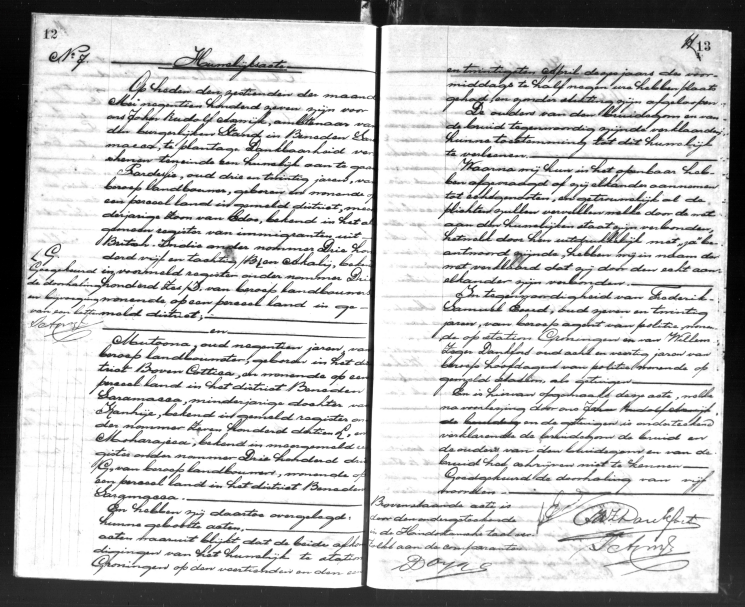 12
No 7. Huwelijksacte.
Op heden den zestienden der maand
Mei negentien honderd zeven zijn voor
ons Johan Rudolf ambtenaar van
den burgerlijken Stand in Beneden Sa
macca, te plantage Dankbaarheid ver
schenen teneinde een huwelijk aan te gaan
oud drie en twintig jaren, van
beroep landbouwer, geboren en wonende op
een perceel land in gemeld district, meer
derjarige zoon van bekend in het al
gemeen register van immigranten uit
Britsch Indie onder nommer Drie hon
derd vijf en tachtig en bekend
in voormeld register onder nommer Drie
honderd zes van beroep landbouwers
wonende op een perceel land in ge
meld district;
L G.
Goedgekeurd
de doorhaling
en bijvoeging
van een letter
en
oud negentien jaren, van
beroep landbouwster, geboren in het dis
trict Boven Cottica, en wonende op een
perceel land in het district Beneden
Saramacca, minderjarige dochter van
bekend in gemeld register on
der nommer Zeven honderd dertien en
Moharajea, bekend in meergemeld re
gister onder nommer Drie honderd drie
G, van beroep landbouwers, wonende op
een perceel land in het district Beneden
Saramacca.
En hebben zij daartoe overgelegd:
hunne geboorte acten,
acten waaruit blijkt dat de beide afkon
digingen van het huwelijk te station
Groningen op den veertienden en den een
13
en twintigsten April dezes jaars des voor
middags te half negen ure hebben plaats
gehad en zonder stuiting zijn afgeloopen.
De ouders van den Bruidegom en van
de bruid tegenwoordig zijnde verklaarden
hunne toestemming tot dit huwelijk
te verleenen.
Waarna wij hun in het openbaar heb
ben afgevraagd of zij elkander aannemen
tot echtgenooten, en getrouwelijk al de
plichten zullen vervullen welke door de wet
aan den huwelijken staat zijn verbonden,
hetwelk door hen uitdrukkelijk met "ja" be
antwoord zijnde, hebben wij in naam der
wet verklaard dat zij door den echt aan
elkander zijn verbonden.
In tegenwoordigheid van Frederik
Samuel oud zeven en twintig
jaren, van beroep agent van politie, wonen
de op station Groningen en van Willem
Jager Dankfort oud acht en veertig jaren van
beroep hoofdagent van politie wonende op
gemeld station, als getuigen.
En is hiervan opgemaakt deze acte, welke
na voorlezing door ons Johan Rudolf
en de getuigen is onderteekend
verklarende de bruidegom de bruid en
de ouders van den bruidegom en van de
bruid niet schrijven te kennen
Goedgekeurd de doorhaling van vijf
woorden.
Bovenstaande acte is
door den ondergeteekende
in de Hindostansche taal ver
tolkt aan de comparanten